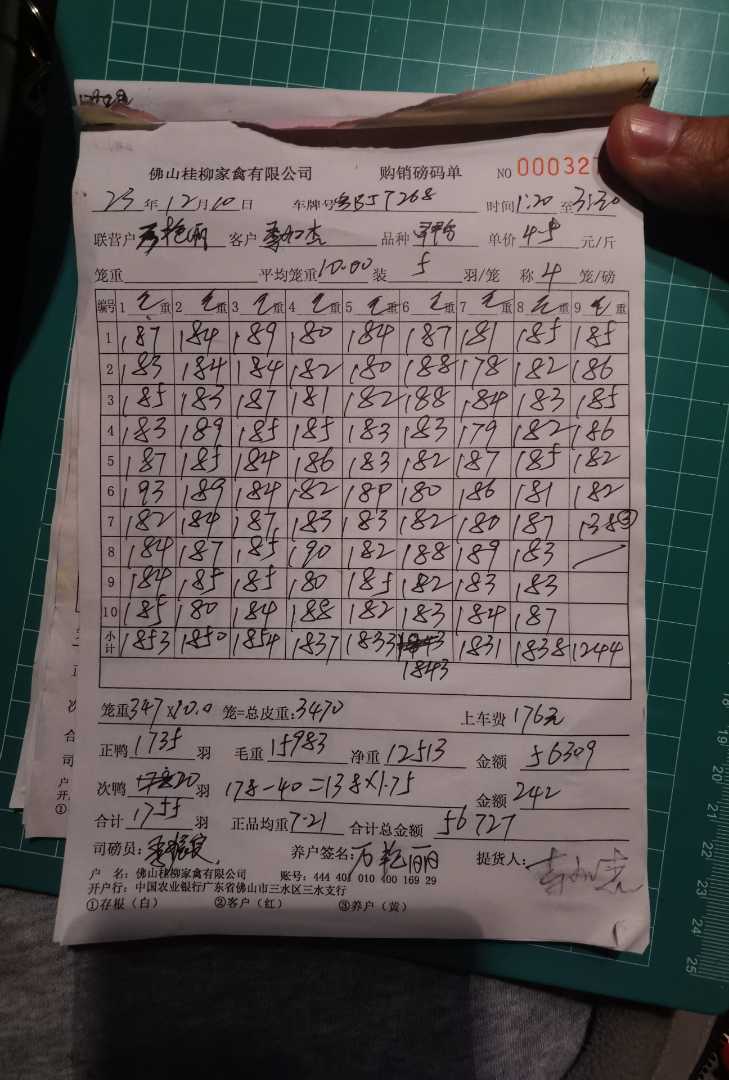 佛山桂柳家禽有限公司 购销磅码单 NO 000327
23年12月10日 车牌号 粤B57268 时间 1:20 至 3:30
联营户 客户 李如杰 品种 单价 4.5 元/斤
笼重 平均笼重 10.00 装 5 羽/笼 称 4 笼/磅
编号 1 毛重 2 毛重 3 毛重 4 毛重 5 毛重 6 毛重 7 毛重 8 毛重 9 毛重
1 187 184 189 180 184 187 181 185 185
2 183 184 184 182 180 188 178 182 186
3 185 183 187 181 182 188 184 183 185
4 183 189 185 185 183 183 179 182 186
5 187 185 184 186 183 182 187 185 182
6 193 189 184 182 189 180 186 181 182
7 182 184 187 183 183 182 180 187 138③
8 184 187 185 190 182 188 189 183
9 184 185 185 180 185 182 183 183
10 185 180 184 188 182 183 184 187
小计 1853 1850 1854 1837 1833 1843 1831 1838 1244
1843
笼重 347 X 10.0 笼=总皮重: 3470 上车费 176元
正鸭 1735 羽 毛重 15983 净重 12513 金额 56309
次鸭 20 羽 178-40=138X1.75 金额 242
合计 1755 羽 正品均重 7.21 合计总金额 56727
司磅员: 养户签名: 提货人:
户 名: 佛山桂柳家禽有限公司 账号: 444 401 010 400 169 29
开户行: 中国农业银行广东省佛山市三水区三水支行
①存根(白) ②客户(红) ③养户(黄)
18
19
20
21
22
23
24
25